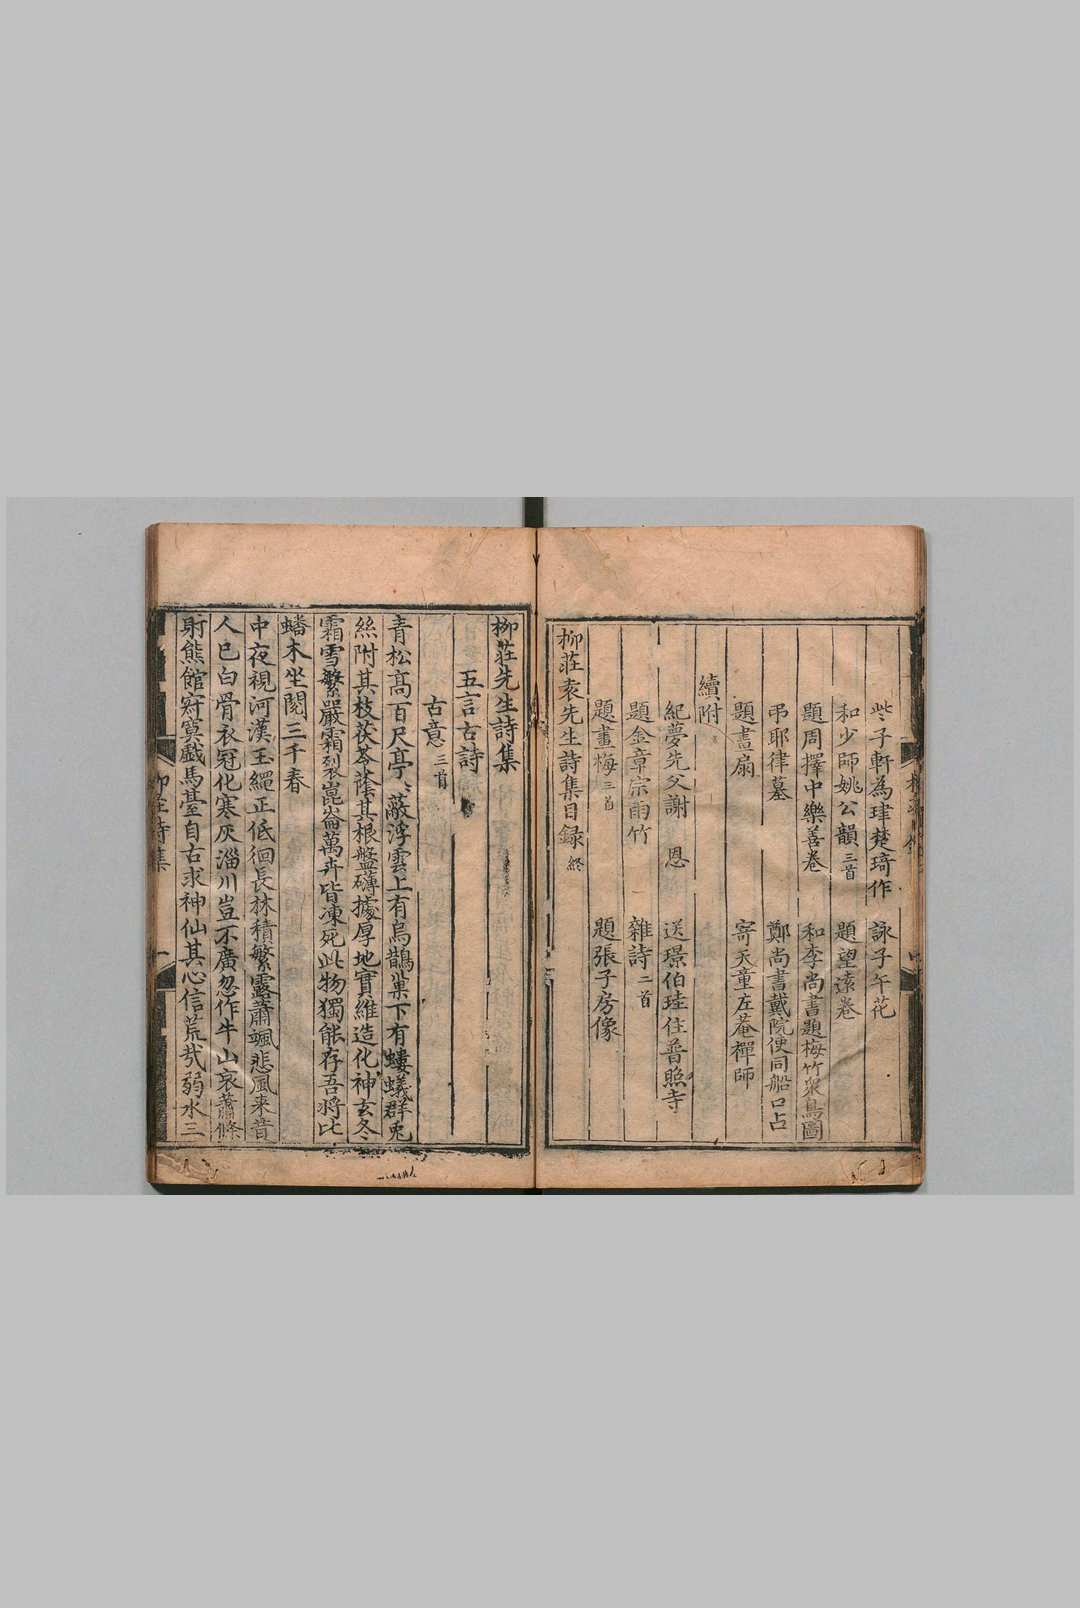 些子軒為珒楚琦作　詠子午花
和少師姚公韻三首　題望遠卷
題周擇中樂善卷　和李尚書題梅竹眾鳥圖
弔耶律墓　鄭尚書戴院使同船口占
題畫扇　寄天童左菴禪師
續附
紀夢先父謝　恩　送璟伯珪住普照寺
題金章宗雨竹　雜詩二首
題畫梅三首　題張子房像
柳莊袁先生詩集目録終
柳莊先生詩集
五言古詩
古意三首
青松高百尺亭々蔽浮雲上有烏鵲巢下有螻蟻群兎
絲附其枝茯苓蔭其根盤礴據厚地實維造化神玄冬
霜雪繁嚴霜裂崑崙萬卉皆凍死此物獨能存吾將比
蟠木坐閱三千春
中夜視河漢玉繩正低徊長林積繁露蕭颯悲風来昔
人已白骨衣冠化寒灰淄川豈不廣忽作牛山哀蕭條
射熊館寂寞戲馬臺自古求神仙其心信荒哉弱水三
柳莊詩集
一